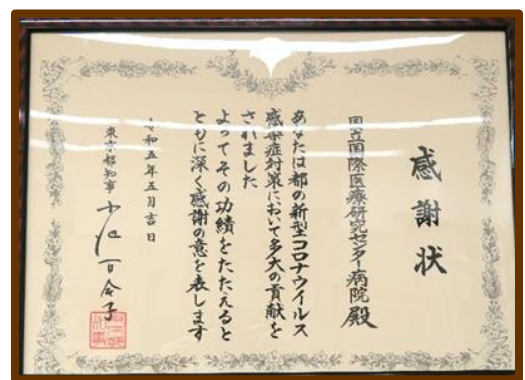 感謝状
国立国際医療研究センター病院殿
あなたは都の新型コロナウイルス
感染症対策において多大の貢献を
されました
よってその功績をたたえると
ともに深く感謝の意を表します
令和五年五月吉日
東京都知事 小池百合子